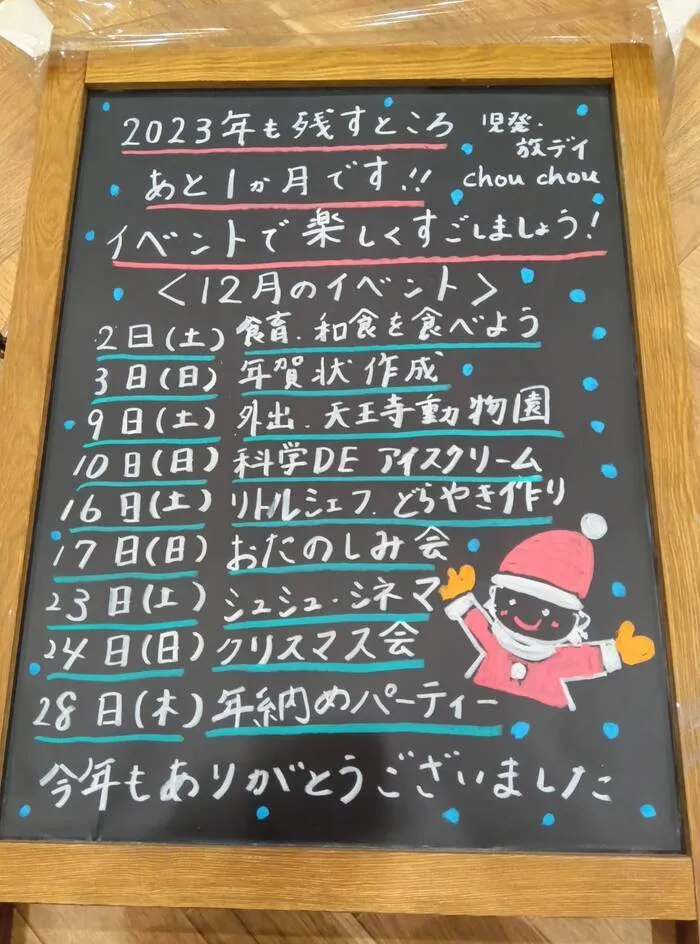 2023年も残すところ
児発・
放デイ
chou chou
あと1か月です!!
イベントで楽しくすごしましょう!
<12月のイベント>
2日(土) 食育.和食を食べよう
3日(日) 年賀状作成
9日(土) 外出.天王寺動物園
10日(日) 科学DE アイスクリーム
16日(土) リトルシェフ.どらやき作り
17日(日) おたのしみ会
23日(土) シュシュ・シネマ
24日(日) クリスマス会
28日(木) 年納めパーティー
今年もありがとうございました